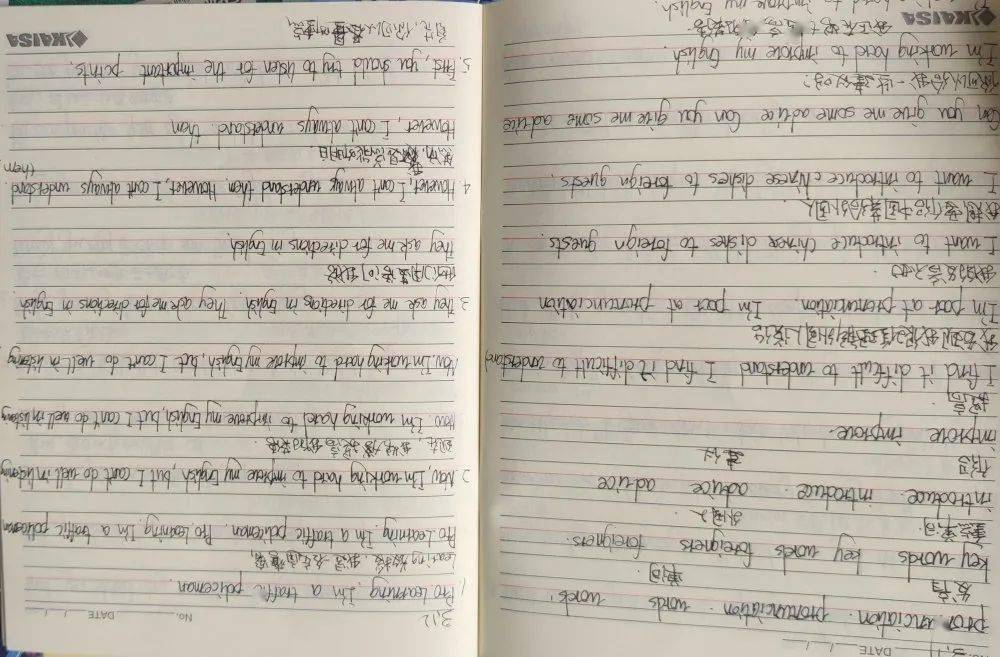 NO.
DATE
3.11
pronunciation. pronunciation. words words.
发音 单词
key words key words foreigners foreigners.
外国人
introduce. introduce. advice advice
介绍 建议
improve improve.
提高
I find it difficult to understand I find it difficult to understand
I'm poor at pronunciation. I'm poor at pronunciation
I want to introduce Chinese dishes to foreign guests.
I want to introduce chinese dishes to foreign guests.
Can you give me some advice Can you give me some advice
你可以给我一些建议吗?
I'm working hard to improve my English.
KAISA
NO.
DATE
3.12
1. Pro Learning. I'm a traffic policeman.
Pro Learning. I'm a traffic policeman. Pro Learning. I'm a traffic policeman
2. Now, I'm working hard to improve my English, but I can't do well in listening
Now. I'm working hard to improve my English, but I can't do well in listening
Now. I'm working hard to improve my English, but I can't do well in listening
3. They ask me for directions in English They ask me for directions in English
他们用英语向我问路
They ask me for directions in English.
4. However, I can't always understand them. However, I can't always understand
them
However, I can't always understand them.
5. First, you should try to listen for the important points.
KAISA